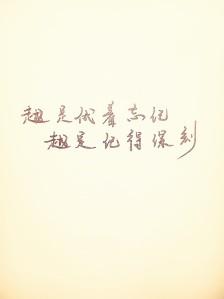 越是试着忘记
越是记得深刻